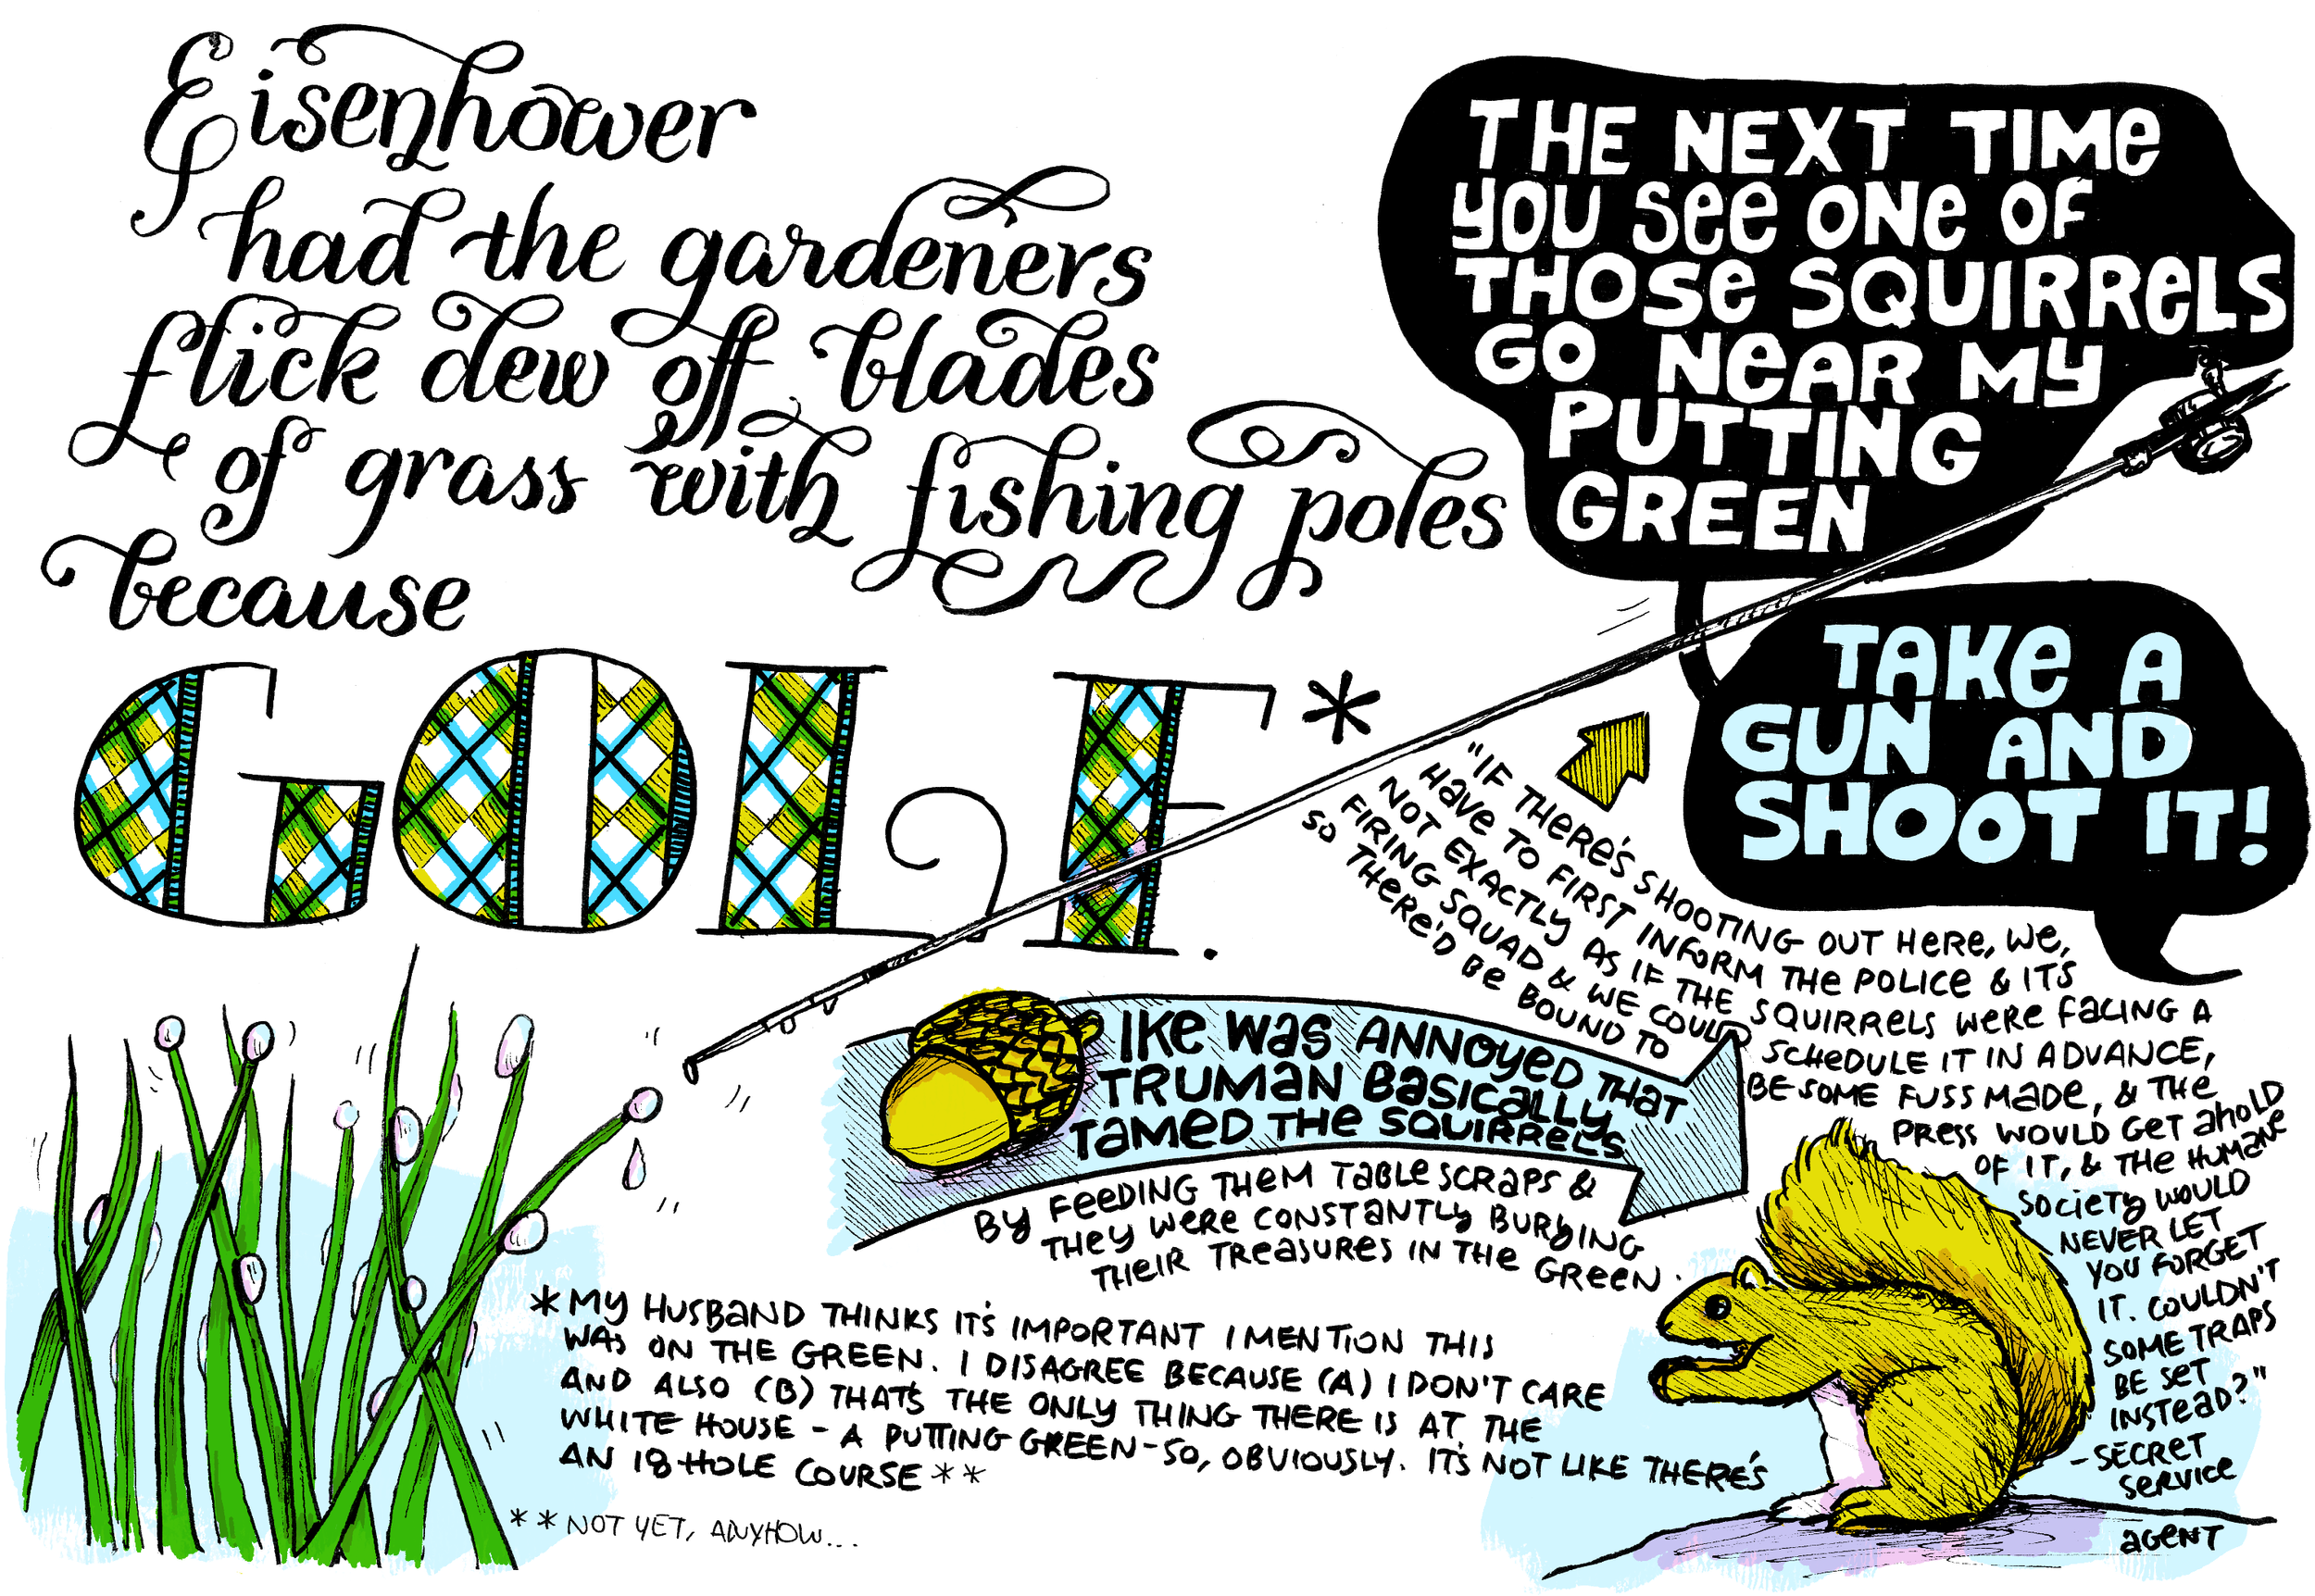 Eisenhower
had the gardeners
flick dew off blades
of grass with fishing poles
because
GOLF.*
THE NEXT TIME
YOU SEE ONE OF
THOSE SQUIRRELS
GO NEAR MY
PUTTING
GREEN
TAKE A
GUN AND
SHOOT IT!
"IF THERE'S SHOOTING OUT HERE, WE,
HAVE TO FIRST INFORM THE POLICE & ITS
NOT EXACTLY AS IF THE SQUIRRELS WERE FACING A
FIRING SQUAD & WE COULD SCHEDULE IT IN ADVANCE,
SO THERE'D BE BOUND TO BE SOME FUSS MADE, & THE
PRESS WOULD GET AHOLD
OF IT, & THE HUMANE
SOCIETY WOULD
NEVER LET
YOU FORGET
IT. COULDN'T
SOME TRAPS
BE SET
INSTEAD?"
-SECRET
SERVICE
AGENT
IKE WAS ANNOYED THAT
TRUMAN BASICALLY
TAMED THE SQUIRRELS
BY FEEDING THEM TABLE SCRAPS &
THEY WERE CONSTANTLY BURYING
THEIR TREASURES IN THE GREEN.
*MY HUSBAND THINKS IT'S IMPORTANT I MENTION THIS
WAS ON THE GREEN. I DISAGREE BECAUSE (A) I DON'T CARE
AND ALSO (B) THAT'S THE ONLY THING THERE IS AT THE
WHITE HOUSE - A PUTTING GREEN - SO, OBVIOUSLY. IT'S NOT LIKE THERE'S
AN 18-HOLE COURSE**
**NOT YET, ANYHOW...